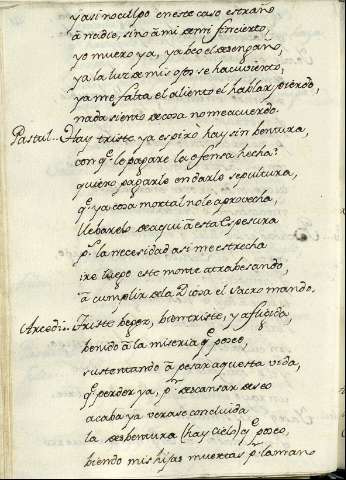 y asi no culpo en este caso estraño
a nadie, sino à mi de mi fin cierto,
yo muero ya, ya beo el desengaño,
ya la luz de mis ojos se ha cubierto,
ya me falta el aliento el hablar pierdo,
nada siento de cosa no me acuerdo.
Pastul.. Hay triste ya espiro hay sin bentura,
con q.e le pagare la ofensa hecha?
quiero pagarle en darle sepultura,
q.e ya cosa mortal no le aprovecha,
llebarelo de aqui à esta espesura
p.s la necesidad asi me estrecha
ire luego este monte atrabesando,
à cumplir de la Diosa el sacro mando.
Arcedio.. Triste bejez, bien triste, y afligida,
benido à la miseria q.e poseo,
sustentando à pesar aquesta vida,
q.e perder ya, p.r descansar deseo
acaba ya verase concluida
la desbentura (hay cielo) q.e poseo,
biendo mis hijas muertas p.r la mano